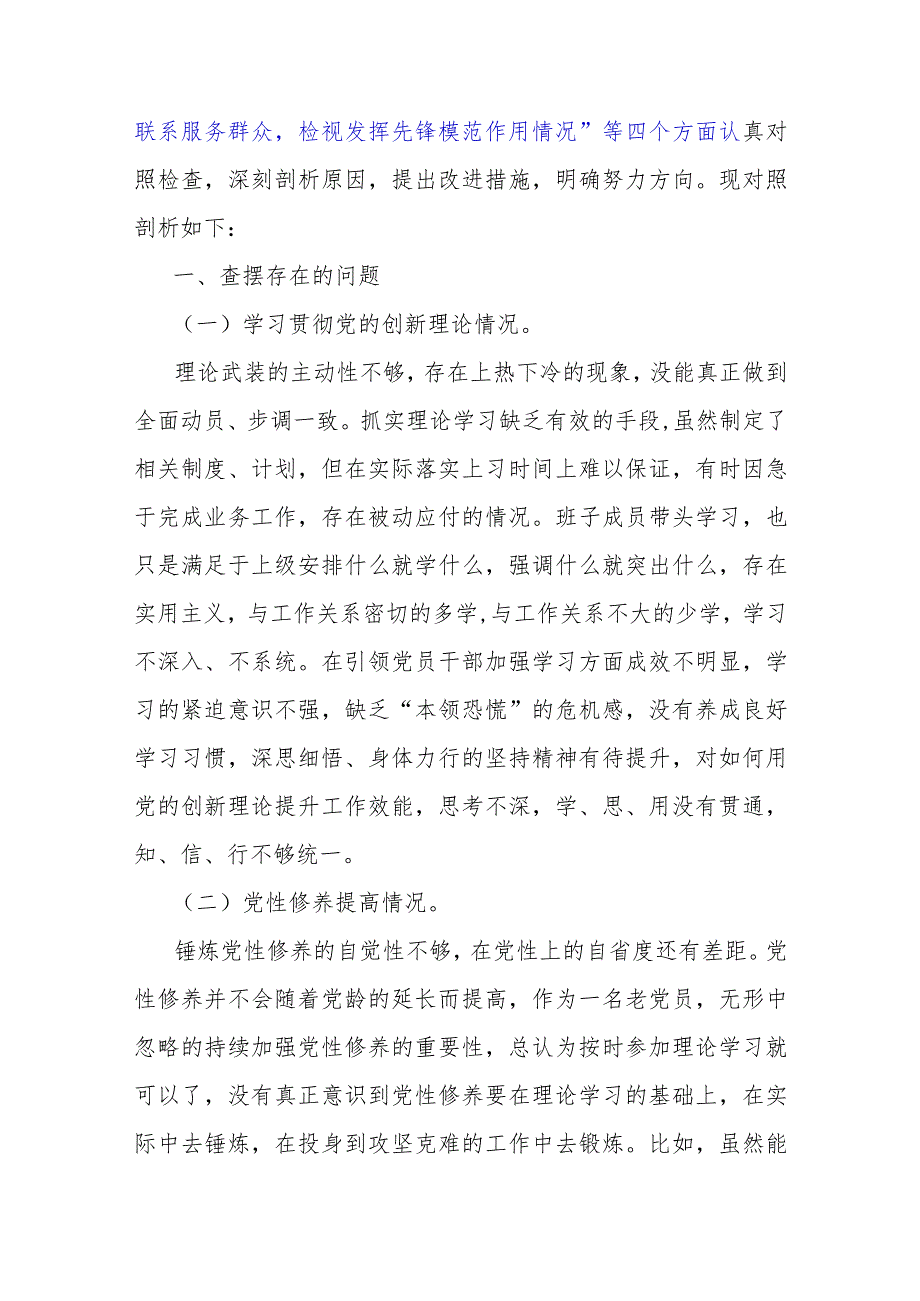 联系服务群众，检视发挥先锋模范作用情况”等四个方面认真对
照检查，深刻剖析原因，提出改进措施，明确努力方向。现对照
剖析如下：
一、查摆存在的问题
（一）学习贯彻党的创新理论情况。
理论武装的主动性不够，存在上热下冷的现象，没能真正做到
全面动员、步调一致。抓实理论学习缺乏有效的手段,虽然制定了
相关制度、计划，但在实际落实上习时间上难以保证，有时因急
于完成业务工作，存在被动应付的情况。班子成员带头学习，也
只是满足于上级安排什么就学什么，强调什么就突出什么，存在
实用主义，与工作关系密切的多学,与工作关系不大的少学，学习
不深入、不系统。在引领党员干部加强学习方面成效不明显，学
习的紧迫意识不强，缺乏“本领恐慌”的危机感，没有养成良好
学习习惯，深思细悟、身体力行的坚持精神有待提升，对如何用
党的创新理论提升工作效能，思考不深，学、思、用没有贯通，
知、信、行不够统一。
（二）党性修养提高情况。
锤炼党性修养的自觉性不够，在党性上的自省度还有差距。党
性修养并不会随着党龄的延长而提高，作为一名老党员，无形中
忽略的持续加强党性修养的重要性，总认为按时参加理论学习就
可以了，没有真正意识到党性修养要在理论学习的基础上，在实
际中去锤炼，在投身到攻坚克难的工作中去锻炼。比如，虽然能